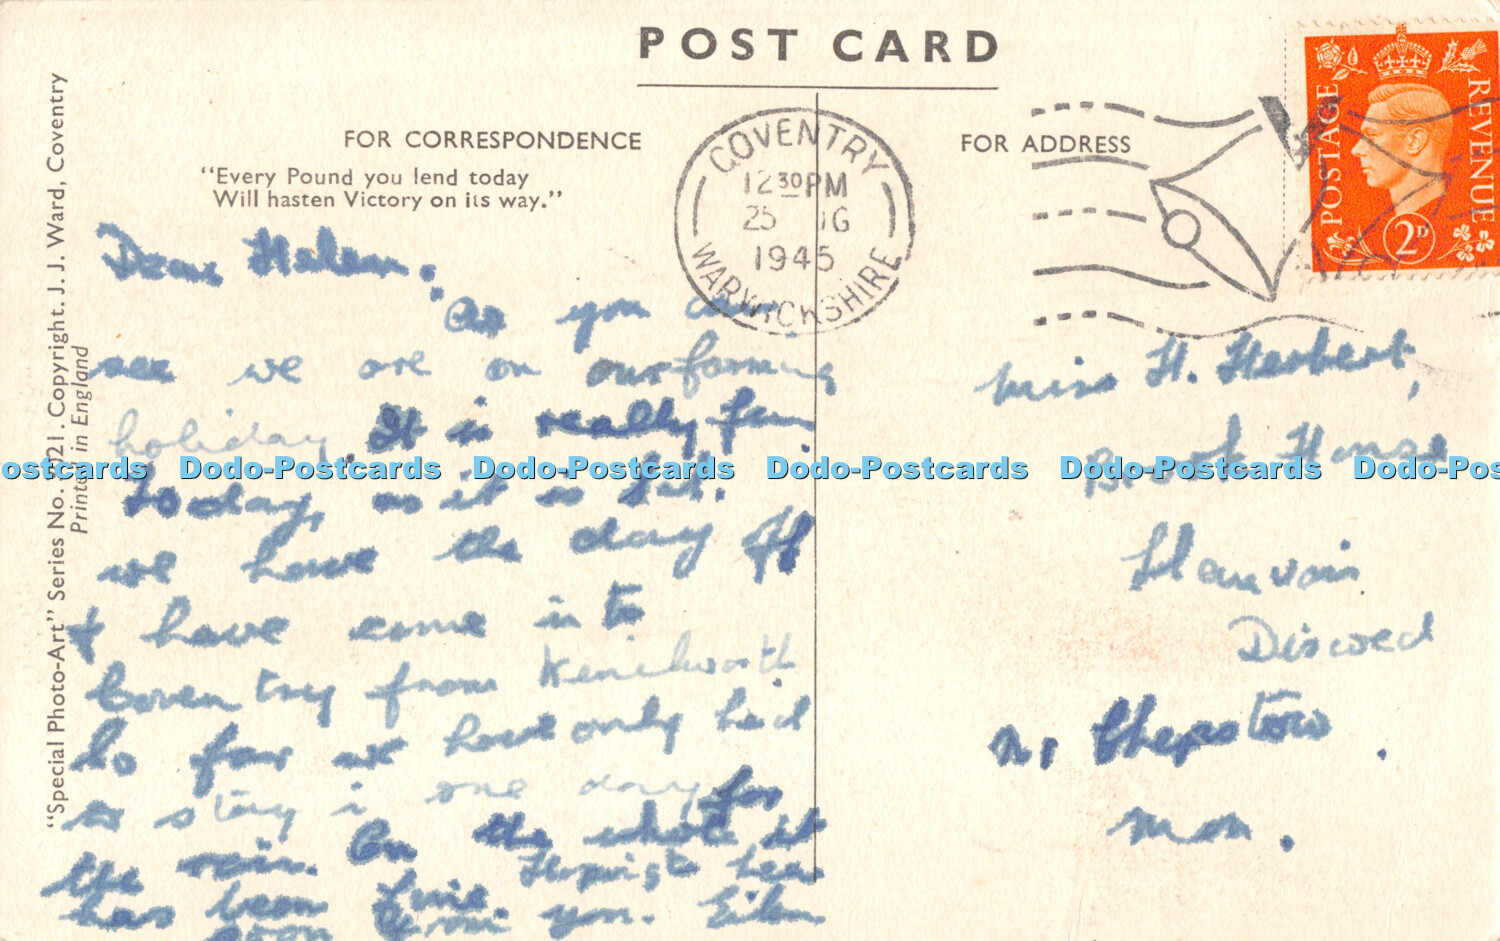 POST CARD
FOR CORRESPONDENCE
FOR ADDRESS
"Every Pound you lend today
Will hasten Victory on its way."
"Special Photo-Art" Series No. 021. Copyright. J. J. Ward, Coventry
Printed in England
COVENTRY
12 30 PM
25 1945
WARWICKSHIRE
POSTAGE REVENUE
2D
Dear Helen,
As you can
see we are on our farming
holiday. It is really fun.
Today, as it is Sat.
we have the day off
& have come in to
Coventry from Kenilworth
So far we have only had
to stay in one day for
the rain. On the whole it
has been fine. hear
soon from you. Eileen
Miss H. Herbert,
Brook House
Llanvair
Discoed
nr Chepstow.
Mon.
Dodo-Postcards Dodo-Postcards Dodo-Postcards Dodo-Postcards